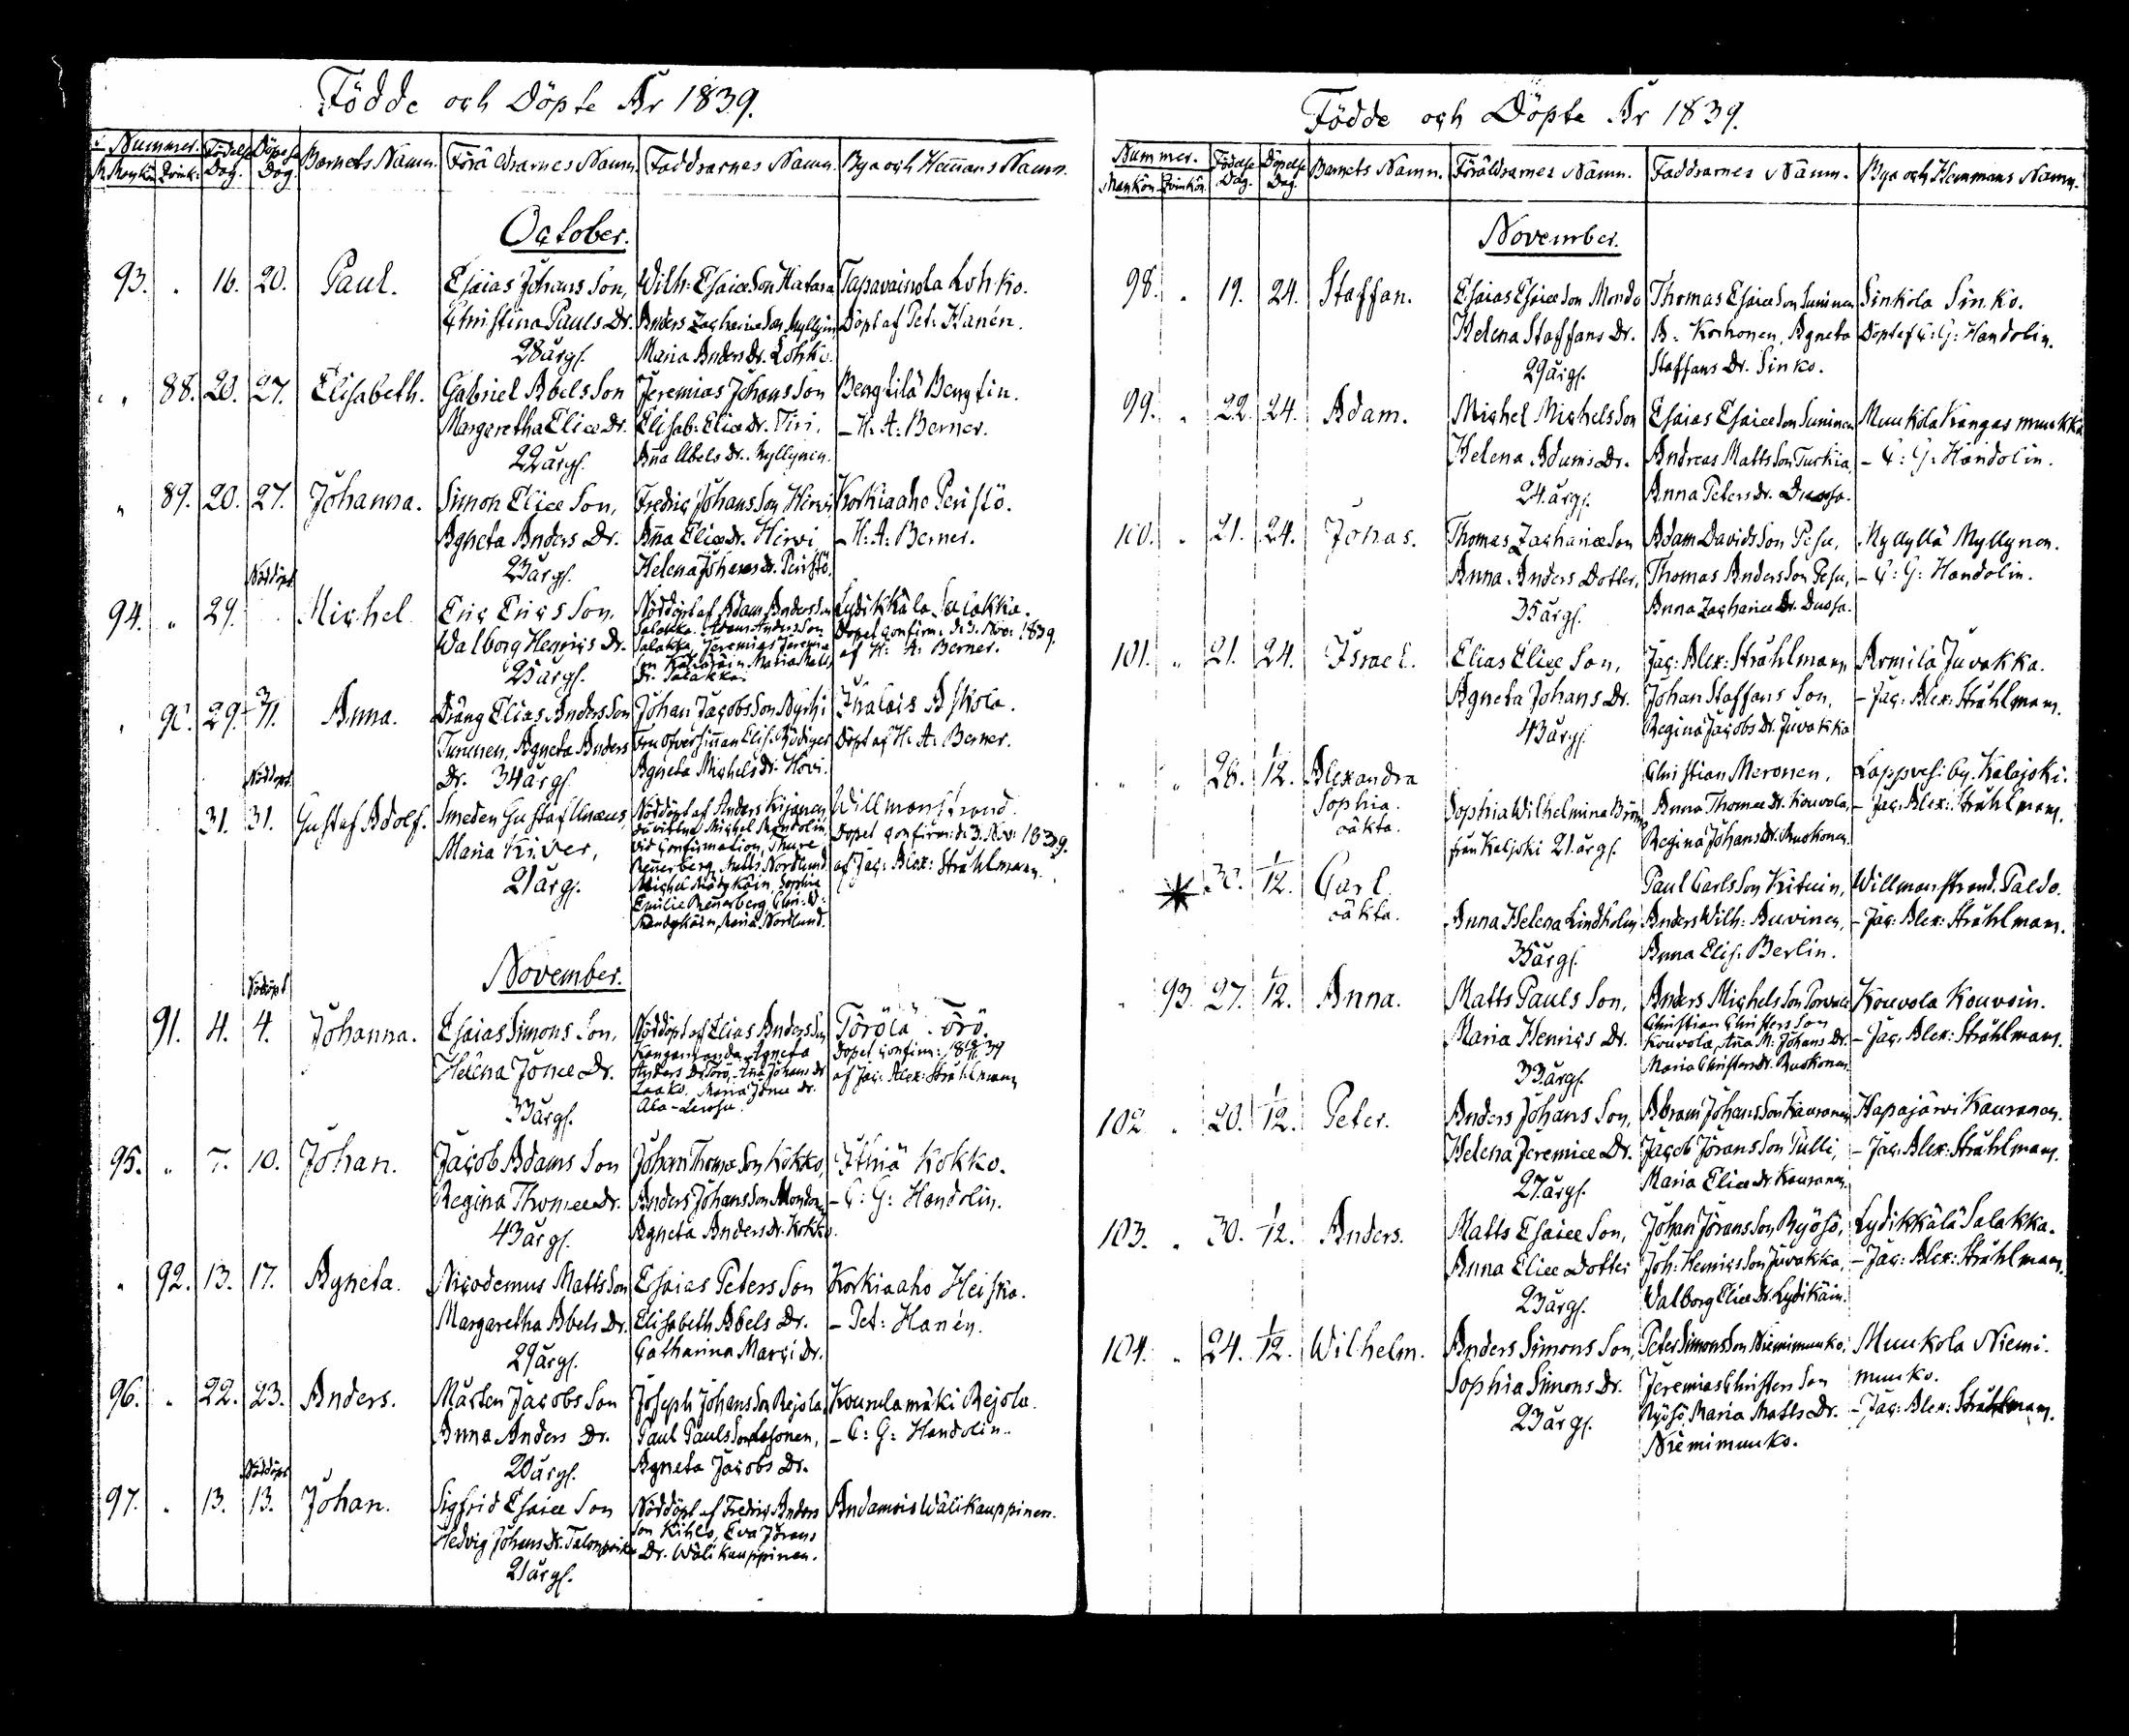 Födde och Döpte År 1839.
Nummer. Födelse Dag. Döpelse Dag Barnets Namn. Föräldrarnes Namn. Faddrarnes Namn. Bya och Hemans Namn.
October.
93. " 16. 20. Paul. Esaias Johans Son, Wilh: Esaiæ Son Hatara Tapavainola Lohko.
Christina Pauls Dr. Anders Zachariæ Son Myllyin, Döpt af Pet: Hanén.
28 årg. Maria Anders Dr. Lohko.
" 88. 20. 27. Elisabeth. Gabriel Abels Son Jeremias Johans Son Bengtilä Bengtin.
Margaretha Eliæ Dr. Elisab: Eliæ Dr. Tiri. - H: A: Berner.
22 årg. Aña Abels Dr. Myllynin.
" 89. 20. 27. Johanna. Simon Eliæ Son, Fredric Johans Son Hirvi Korkiaaho Peristö.
Agneta Anders Dr. Aña Eliæ Dr. Hirvi - H: A: Berner.
23 årg. Helena Johans Dr. Peristö.
Nöddöpt
94. " 29. Michel Eric Erics Son, Nöddöpt af Adam Anders Son Lydikkälä Salakka.
Walborg Henrics Dr. Salakka. Adam Anders Son Dopet confirm: d: 3. Nov: 1839.
Salakka, Jeremias Jeremiæ af H: A: Berner.
25 årg. Maria Matts
Dr. Salakka.
" 90. 29. 31. Anna. Dräng Elias Anders Son Johan Jacobs Son Nyrhi Ihalais Askola.
Turunen, Agneta Anders Elis: Rüdiger Döpt af H: A: Berner.
Dr. 34 årg. Agneta Michels Dr. Hovi.
Nöddöpt
31. 31. Gustaf Adolf. Smeden Gustaf Unæus, Nöddöpt af Anders Kijanen Willmanstrand.
Maria Kiver, Michel Mandolin Dopet confirm: d: 3. Nov: 1839.
21 årg. vid confirmation, af Jac: Alex: Stråhlmann.
Reñerberg, Matts Nordlund
Michel Sophia
Emilie Reñerberg,
Maria Nordlund.
November.
Nöddöpt
91. 4. 4. Johanna. Esaias Simons Son, Nöddöpt af Elias Anders Son Törölä Törö.
Helena Jonæ Dr. Kangasranda, Agneta Dopet confirm: 18 10/11 39
Anders Dr. Törö, Aña Johans Dr. af Jac: Alex: Stråhlmann
33 årg. Laako, Maria Jonæ Dr.
95. " 7. 10. Johan. Jacob Adams Son Johan Thomæ Son Kokko, Ithiä Kokko.
Regina Thomæ Dr. Anders Johans Son Mondonen - C: G: Handolin.
43 årg. Agneta Anders Dr. Kokko.
" 92. 13. 17. Agneta. Nicodemus Matts Son Esaias Peters Son Korkiaaho Heiska.
Margaretha Abels Dr. Elisabeth Abels Dr. - Pet: Hanén.
29 årg. Catharina Marci Dr.
96. " 22. 23. Anders. Mårten Jacobs Son Joseph Johans Son Rejola, Kourulamäki Rejola.
Anna Anders Dr. Paul Pauls Son Lasonen, - C: G: Handolin.
20 årg. Agneta Jacobs Dr.
Nöddöpt
97. " 13. 13. Johan. Sigfrid Esaiæ Son Nöddöpt af Fredric Anders Andamois Wälikauppinen.
Hedvig Johans Dr. Son Kihlo, Eva Jörans
21 årg. Dr. Wälikauppinen.
Födde och Döpte År 1839.
Nummer. Mankön. Qvinkön. Födelse Dag. Döpelse Dag. Barnets Namn. Föräldrarnes Namn. Faddrarnes Namn. Bya och Hemmans Namn.
November.
98. " 19. 24. Staffan. Esaias Esaiæ Son Mondo Thomas Esaiæ Son Suninen Sinkola Sinko.
Helena Staffans Dr. B: Korhonen, Agneta Döpt af C: G: Handolin.
29 årg. Staffans Dr. Sinko.
99. " 22. 24. Adam. Michel Michels Son Esaias Esaiæ Son Suninen Muukola Kangas muukka
Helena Adams Dr. Andreas Matts Son Turkia, - C: G: Handolin.
24 årg. Anna Peters Dr. Dussa.
100. " 21. 24. Jonas. Thomas Zachariæ Son Adam Davids Son Pesu, Myllylä Myllynen.
Anna Anders Dotter, Thomas Anders Son Pesu, - C: G: Handolin.
35 årg. Anna Zachariæ Dr. Dussa.
101. " 21. 24. Israel. Elias Eliæ Son, Jac: Alex: Stråhlmann Armila Juvakka.
Agneta Johans Dr. Johan Staffans Son, - Jac: Alex: Stråhlmann.
43 årg. Regina Jacobs Dr. Juvakka
" " 26. 1/12. Alexandra Christian Meronen, Lappvesi by. Kalajoki.
Sophia. Sophia Wilhelmina Anna Thomæ Dr. Kouvola, - Jac: Alex: Stråhlmann.
oäkta. från Kaljoki 21 årg. Regina Johans Dr. Ruohonen
" * 30. 1/12. Carl Paul Carls Son Willmanstrand. Paldo.
oäkta. Anna Helena Lindholm Anders Wilh: Auvinen, - Jac: Alex: Stråhlmann.
35 årg. Anna Elis: Berlin.
" 93. 27. 1/12. Anna. Matts Pauls Son, Anders Michels Son Kouvola Kouvoin.
Maria Henrics Dr. Christian Christers Son - Jac: Alex: Stråhlmann.
Kouvola, Aña M: Johans Dr.
33 årg. Maria Christers Dr. Ruohonen.
102 " 20. 1/12. Peter. Anders Johans Son, Abram Johans Son Kauranen Hapajärvi Kauranen.
Helena Jeremiæ Dr. Jacob Jörans Son Tulli, - Jac: Alex: Stråhlmann.
27 årg. Maria Eliæ Dr. Kauranen.
103. " 30. 1/12. Anders. Matts Esaiæ Son, Johan Jörans Son Ryösö, Lydikkälä Salakka.
Anna Eliæ Dotter Joh: Henrics Son Juvakka, - Jac: Alex: Stråhlmann.
23 årg. Walborg Eliæ Dr. Lydikäin.
104. " 24. 1/12. Wilhelm. Anders Simons Son, Peter Simons Son Niemimuuko, Muukola Niemi-
Sophia Simons Dr. Jeremias Christers Son muuko.
23 årg. Ryösö, Maria Matts Dr. - Jac: Alex: Stråhlmann.
Niemimuuko.